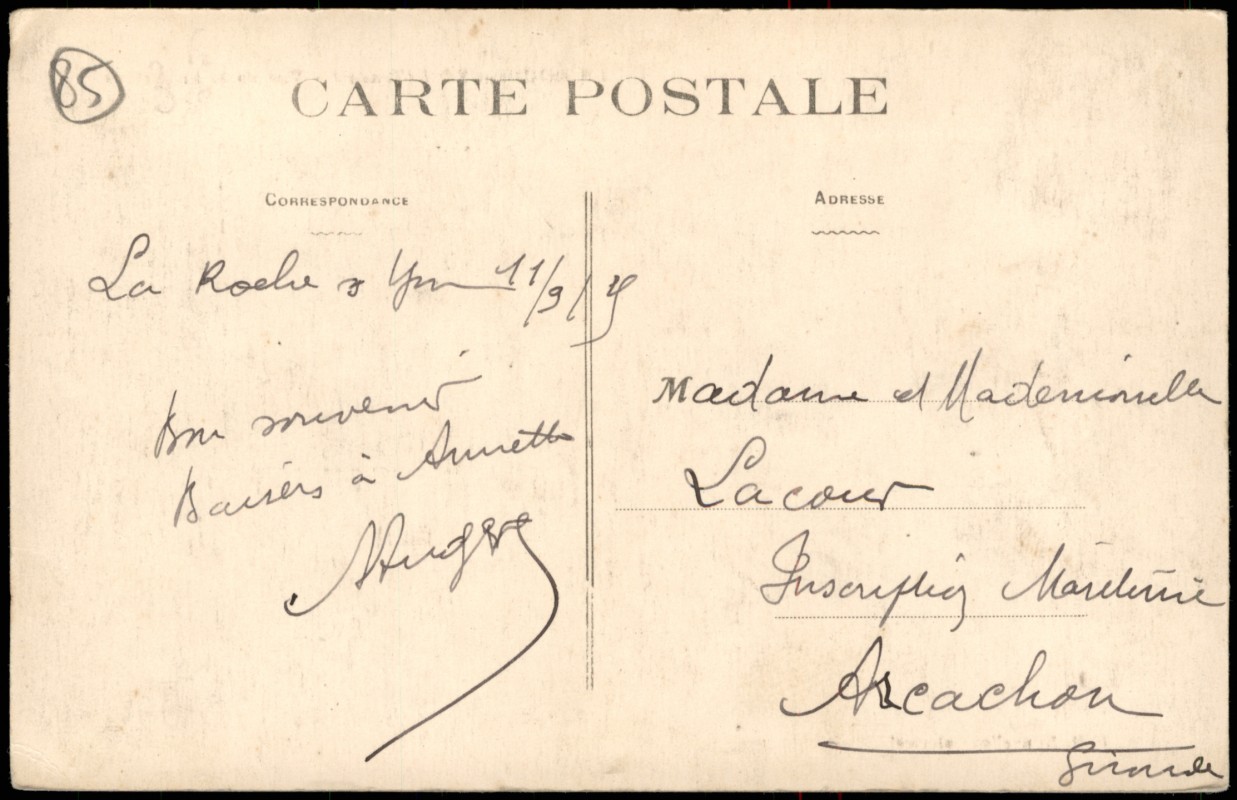 85
CARTE POSTALE
CORRESPONDANCE
ADRESSE
La Roche s Yon 11/9/
Bon souvenir
Baisers à Annette
Madame et Mademoiselle
Lacour
Inscription Maritime
Arcachon
Gironde